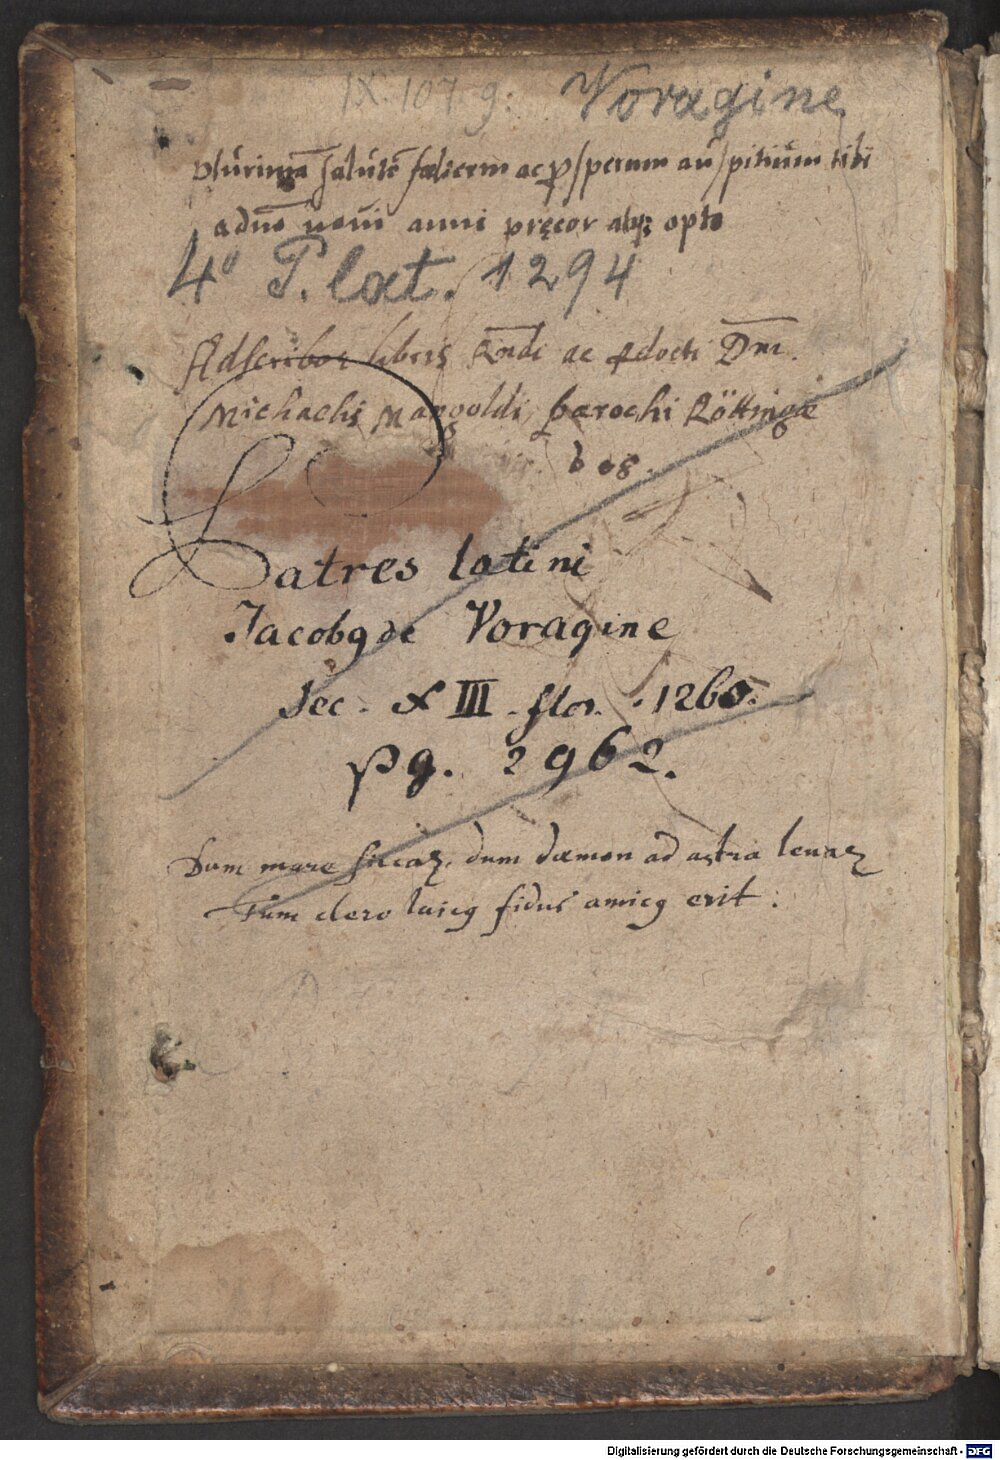 IX. 107. g. Voragine
plurimā salutē fœlicem ac ꝓsperum auspitium tibi
noui anni pręcor atqꝫ opto
4° P. lat. 1294
Adscribor libris Rndi ac docti Dni.
Michaelis Mangoldi, parochi Röttingæ
Patres latini
Jacobꝰ de Voragine
Sec. XIII. flor. 1260.
pg. 2962.
Dum mare siccaꝫ, dum dæmon ad astra leuaꝫ
Tum clero laicꝰ fidus amicꝰ erit:
Digitalisierung gefördert durch die Deutsche Forschungsgemeinschaft - DFG